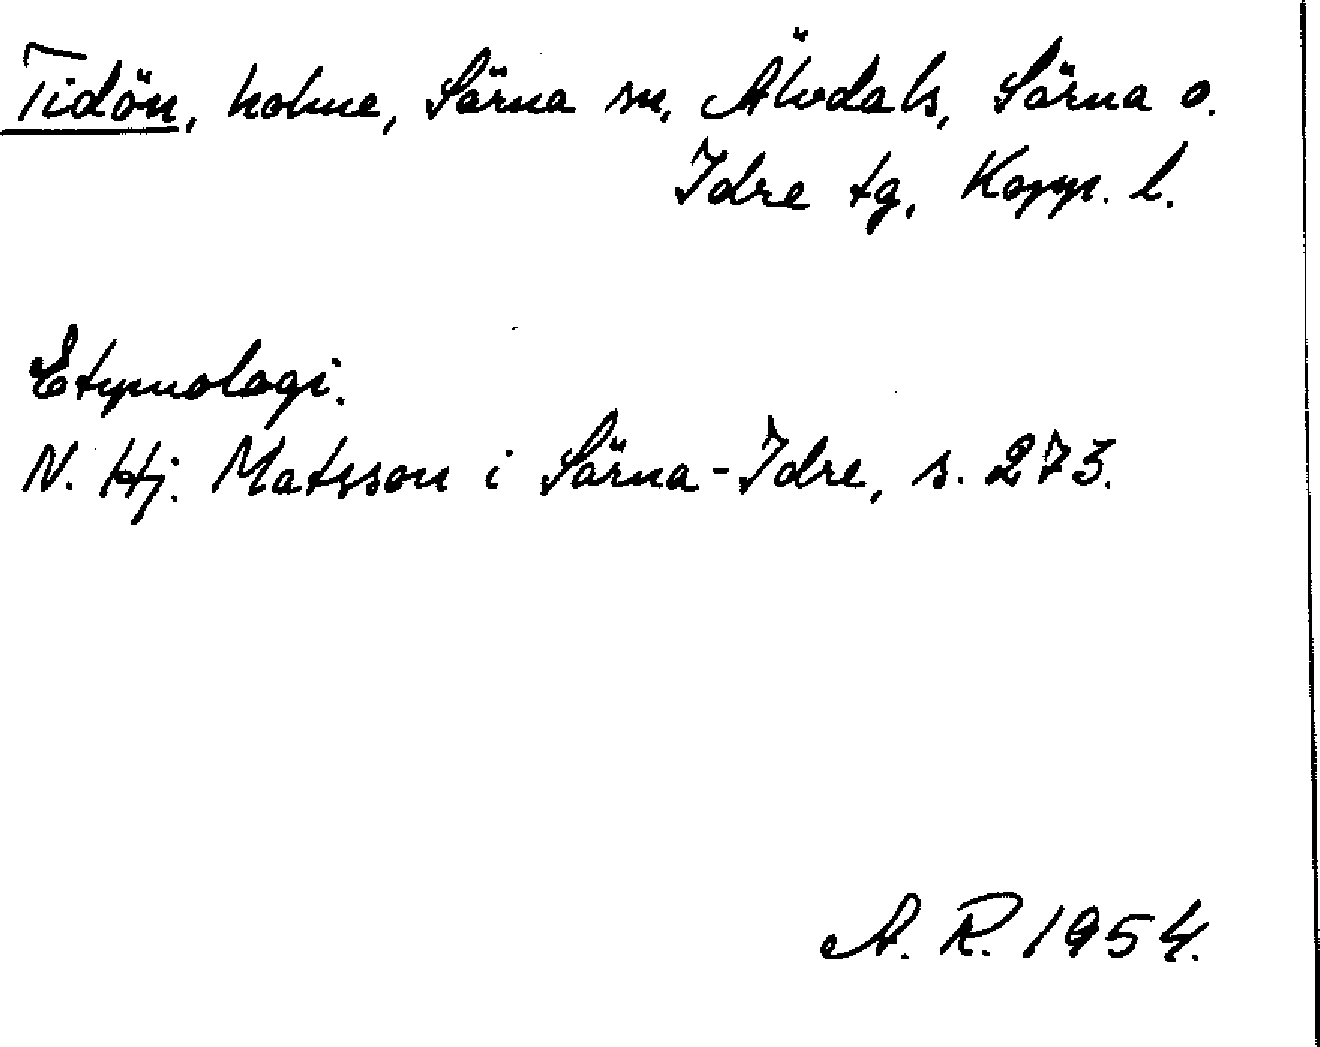 Tidön, holme, Särna sn, Älvdals, Särna o.
Idre tg, Kopp. l.
Etymologi.
N. Hj. Matsson i Särna-Idre, s. 273.
A. R. 1954.